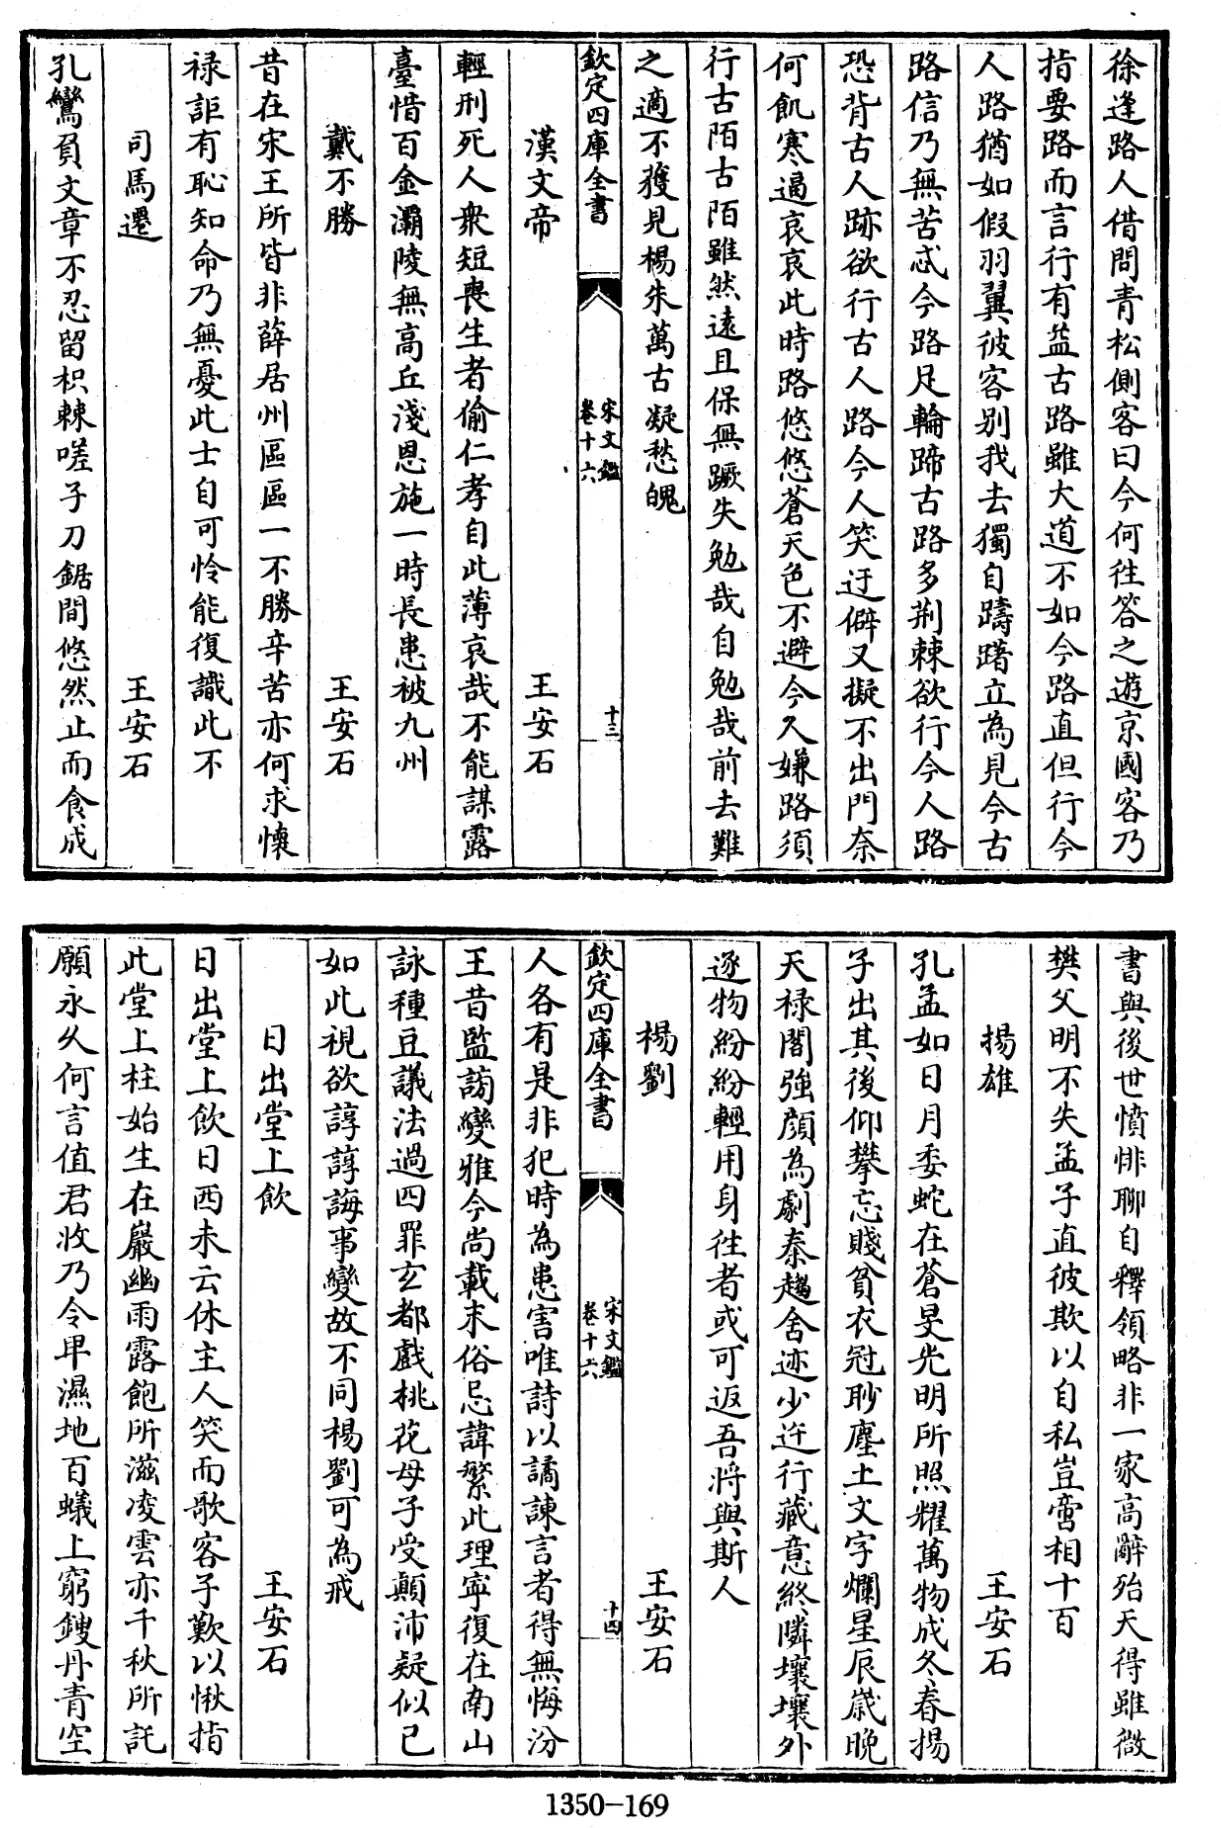 徐逢路人借問青松側客曰今何往答之遊京國客乃
指要路而言行有益古路雖大道不如今路直但行今
人路猶如假羽翼彼客别我去獨自躊躇立為見今古
路信乃無苦忒今路足輪蹄古路多荆棘欲行今人路
恐背古人跡欲行古人路今人笑迂僻又擬不出門奈
何飢寒逼哀哀此時路悠悠蒼天色不避今久嫌路須
行古陌古陌雖然遠且保無蹶失勉哉自勉哉前去難
之適不獲見楊朱萬古凝愁魄
欽定四庫全書
宋文鑑
卷十六
十三
漢文帝
王安石
輕刑死人衆短喪生者偷仁孝自此薄哀哉不能謀露
臺惜百金灞陵無高丘淺恩施一時長患被九州
戴不勝
王安石
昔在宋王所皆非薛居州區區一不勝辛苦亦何求懷
禄詎有恥知命乃無憂此士自可怜能復識此不
司馬遷
王安石
孔鸞負文章不忍留枳棘嗟子刀鋸間悠然止而食成
書與後世憤悱聊自釋領略非一家高辭殆天得雖微
樊父明不失孟子直彼欺以自私豈啻相十百
揚雄
王安石
孔孟如日月委蛇在蒼旻光明所照耀萬物成冬春揚
子出其後仰攀忘賤貧衣冠眇塵土文字爛星辰歲晚
天禄閣強顔為劇秦趨舍迹少迕行藏意終隣壤壤外
逐物紛紛輕用身往者或可返吾將與斯人
楊劉
王安石
欽定四庫全書
宋文鑑
卷十六
十四
人各有是非犯時為患害唯詩以譎諫言者得無悔汾
王昔監謗變雅今尚載末俗忌諱繁此理寧復在南山
詠種豆議法過四罪玄都戲桃花母子受顛沛疑似已
如此視欲諄諄誨事變故不同楊劉可為戒
日出堂上飲
王安石
日出堂上飲日西未云休主人笑而歌客子歎以愀指
此堂上柱始生在巖幽雨露飽所滋凌雲亦千秋所託
願永久何言值君收乃令卑濕地百蟻上窮鎪丹青空
1350-169